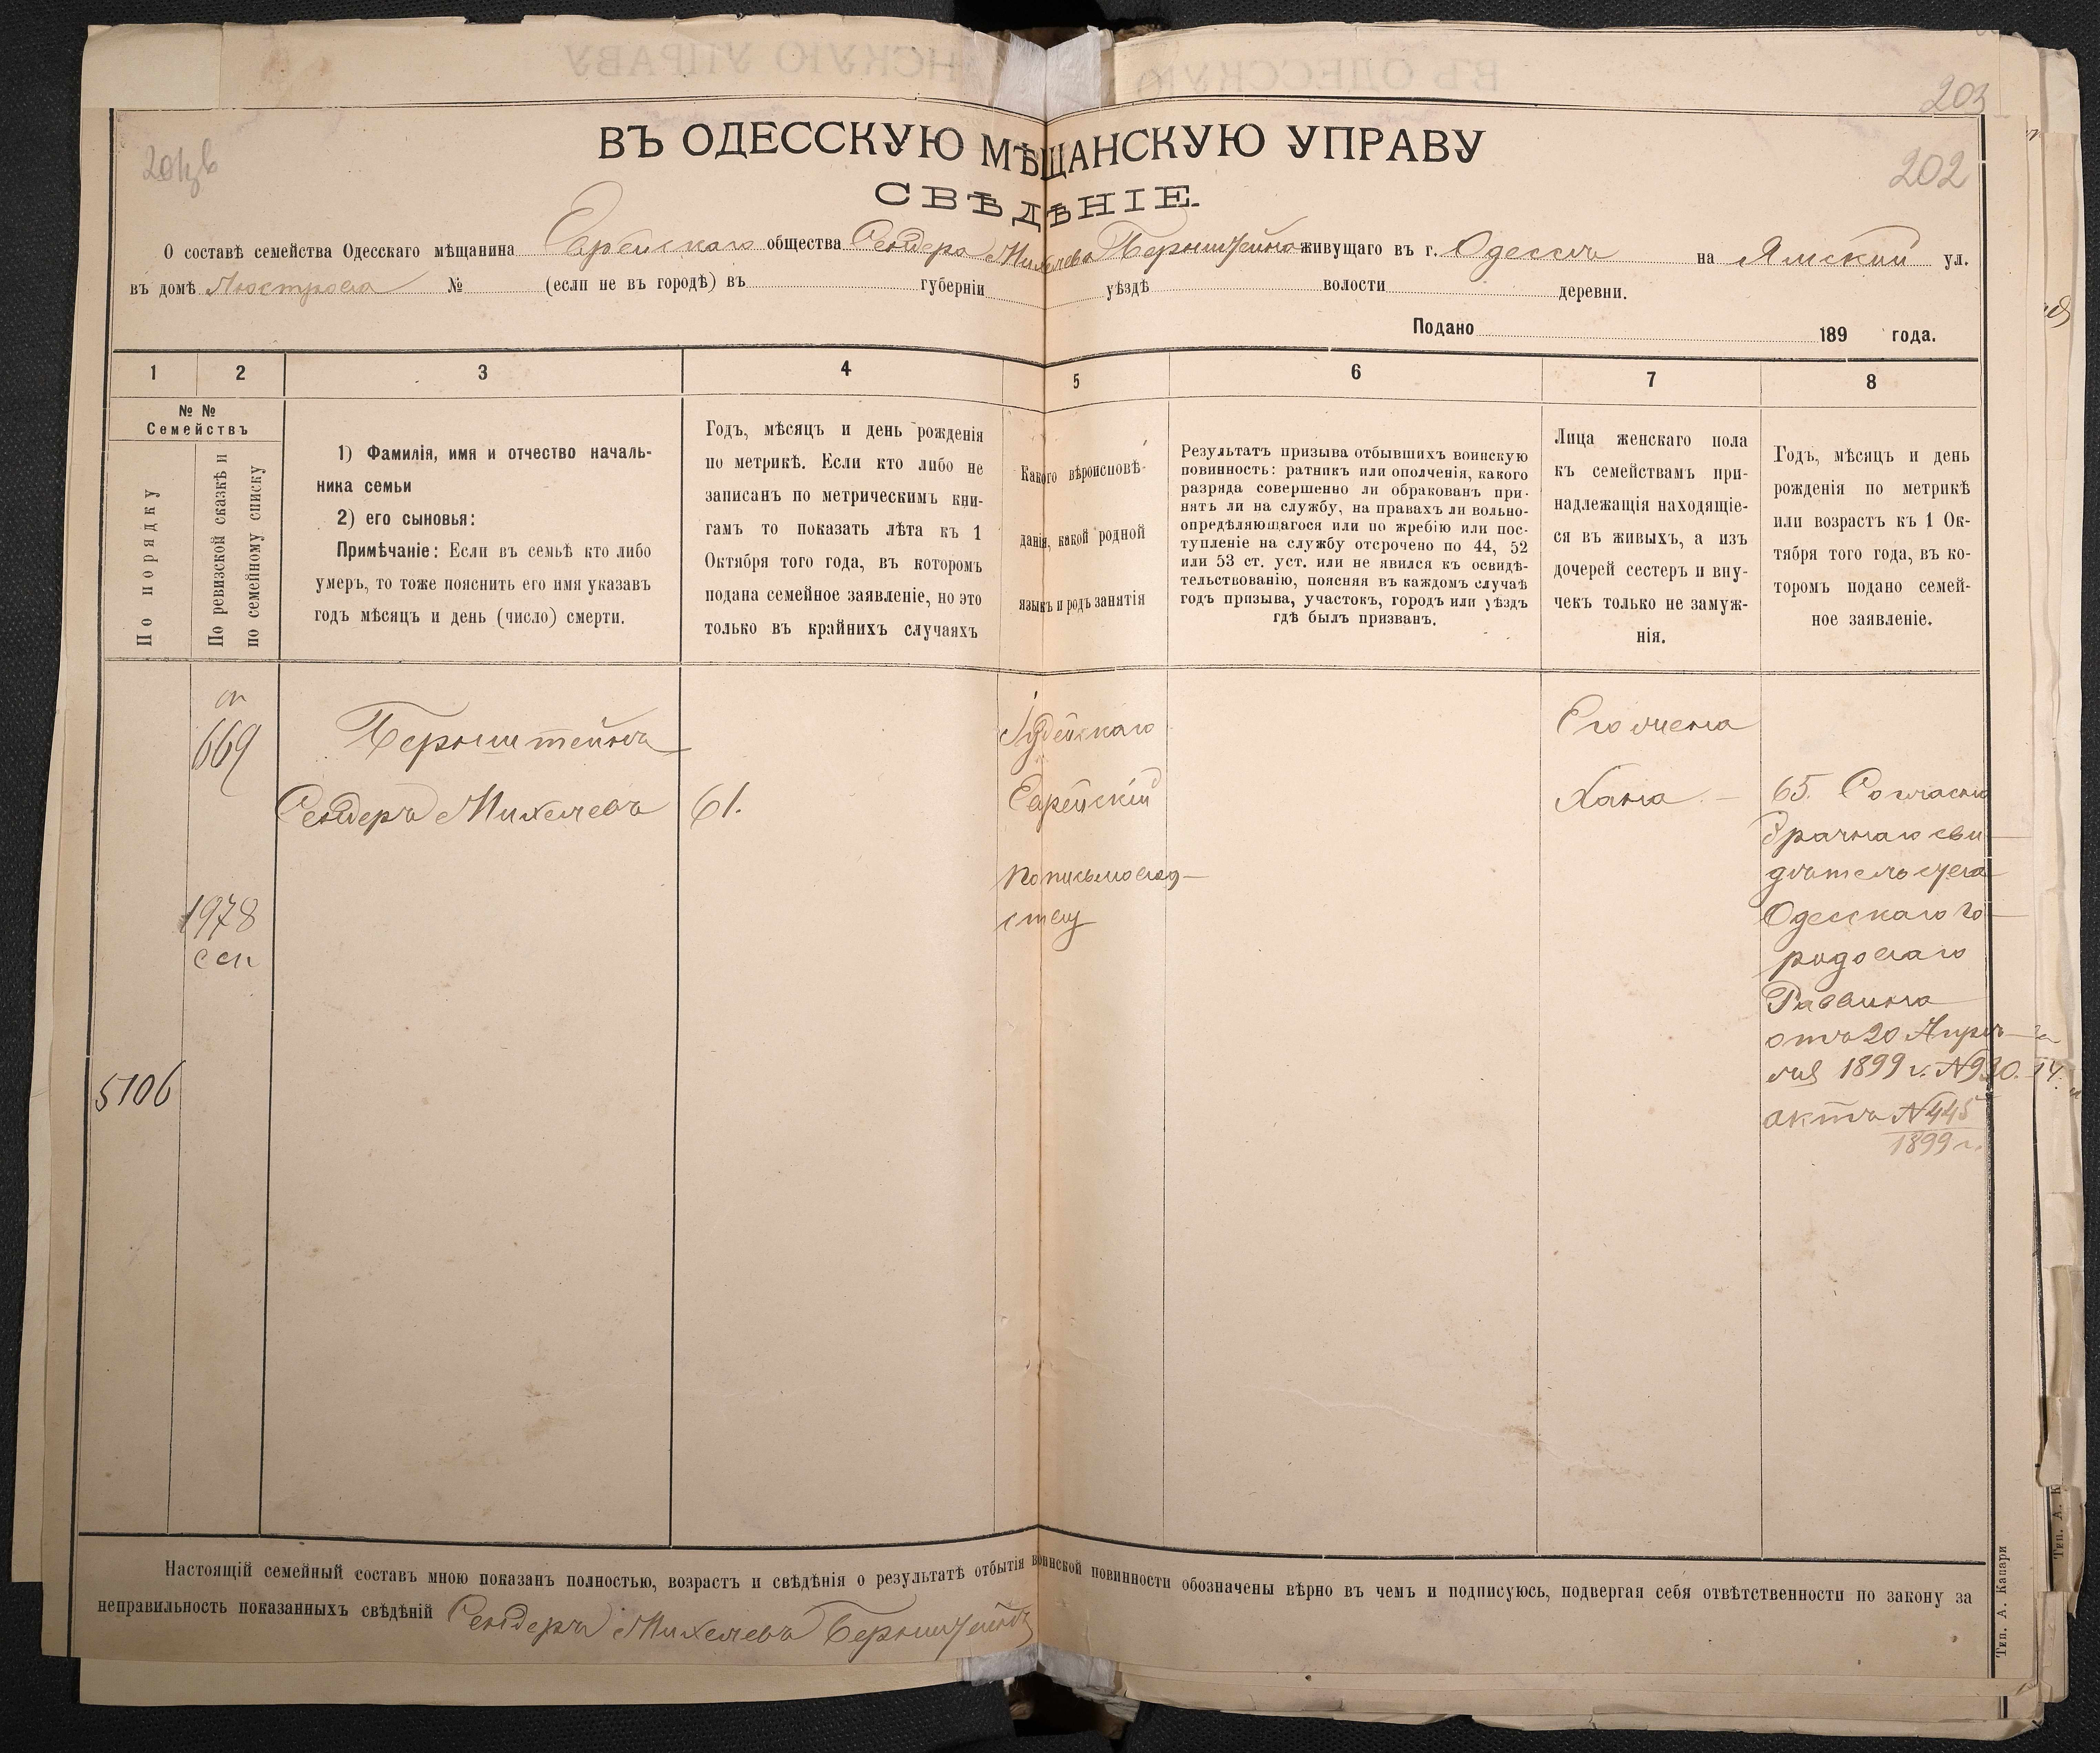 203
202
ВЪ ОДЕССКУЮ МѢЩАНСКУЮ УПРАВУ
СВѢДѢНІЕ.
О составѣ семейства Одесскаго мѣщанина Еврейскаго общества Сендера Михелева Бернштейна живущаго въ г. Одессѣ на Ямской ул.
въ домѣ № (если не въ городѣ) въ губерніи уѣздѣ волости деревни.
Подано 189 года.
1 2 3 4 5 6 7 8
№ №
Семействъ
По порядку
По ревизской сказкѣ и
по семейному списку
1) Фамилія, имя и отчество началь-
ника семьи
2) его сыновья:
Примѣчаніе: Если въ семьѣ кто либо
умеръ, то тоже пояснить его имя указавъ
годъ мѣсяцъ и день (число) смерти.
Годъ, мѣсяцъ и день рожденія
по метрикѣ. Если кто либо не
записанъ по метрическимъ кни-
гамъ то показать лѣта къ 1
Октября того года, въ которомъ
подана семейное заявленіе, но это
только въ крайнихъ случаяхъ
Какого вѣроисповѣ-
данія, какой родной
языкъ и родъ занятія
Результатъ призыва отбывшихъ воинскую
повинность: ратникъ или ополченія, какого
разряда совершенно ли обракованъ при-
нятъ ли на службу, на правахъ ли вольно-
опредѣляющагося или по жребію или пос-
тупленіе на службу отсрочено по 44, 52
или 53 ст. уст. или не явился къ освидѣ-
тельствованію, поясняя въ каждомъ случаѣ
годъ призыва, участокъ, городъ или уѣздъ
гдѣ былъ призванъ.
Лица женскаго пола
къ семействамъ при-
надлежащія находящіе-
ся въ живыхъ, а изъ
дочерей сестеръ и вну-
чекъ только не замуж-
нія.
Годъ, мѣсяцъ и день
рожденія по метрикѣ
или возрастъ къ 1 Ок-
тября того года, въ ко-
торомъ подано семей-
ное заявленіе.
669
Бернштейнъ
Сендеръ Михелевъ
61.
Іудейскаго
Еврейскій
по письмовод-
ству
Его жена
Хана
65. Согласно
брачнаго сви-
дѣтельства
Одесскаго го-
родоваго
Раввина
отъ 20 Апрѣ-
ля 1899 г. N930.
актъ N445
1899 г.
1978
5106
Настоящій семейный составъ мною показанъ полностью, возрастъ и свѣдѣнія о результатѣ отбытія воинской повинности обозначены вѣрно въ чемъ и подписуюсь, подвергая себя отвѣтственности по закону за
неправильность показанныхъ свѣдѣній Сендеръ Михелевъ Бернштейнъ
Тип. А. Капари